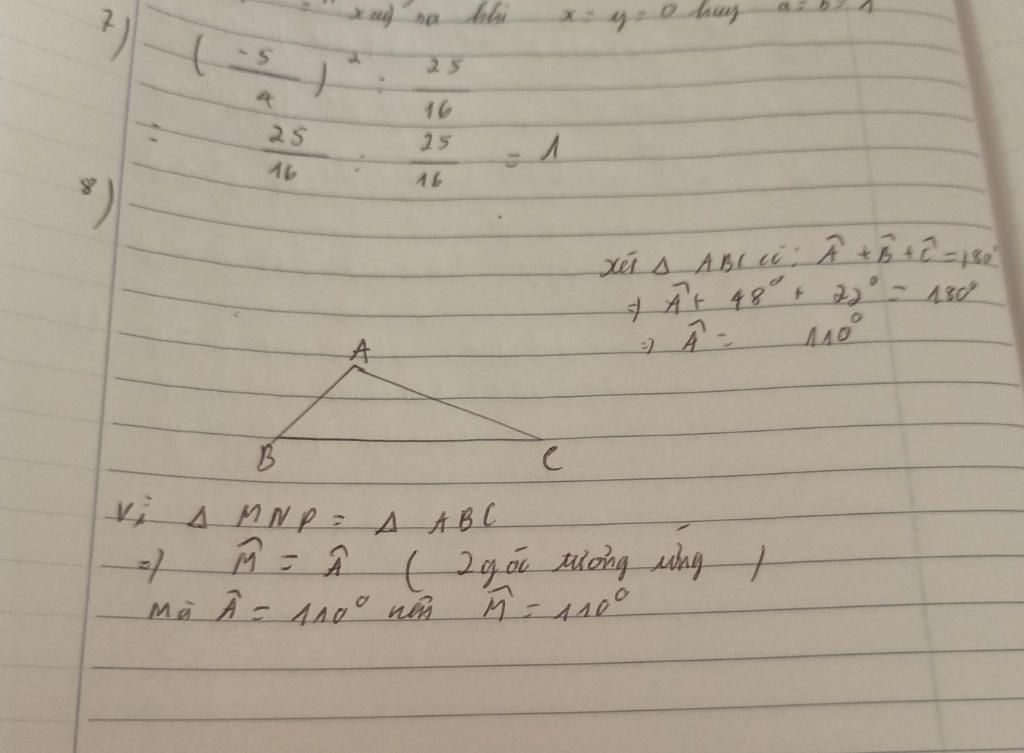 = " xảy ra khi x = y = 0 hay a = b = 1
7)
(-5/4)² : 25/16
= 25/16 : 25/16 = 1
8)
xét Δ ABC có: Â + B̂ + Ĉ = 180°
=) Â + 48° + 22° = 180°
=) Â = 110°
A
B C
Vì Δ MNP = Δ ABC
=) M̂ = Â ( 2 góc tương ứng )
mà Â = 110° nên M̂ = 110°